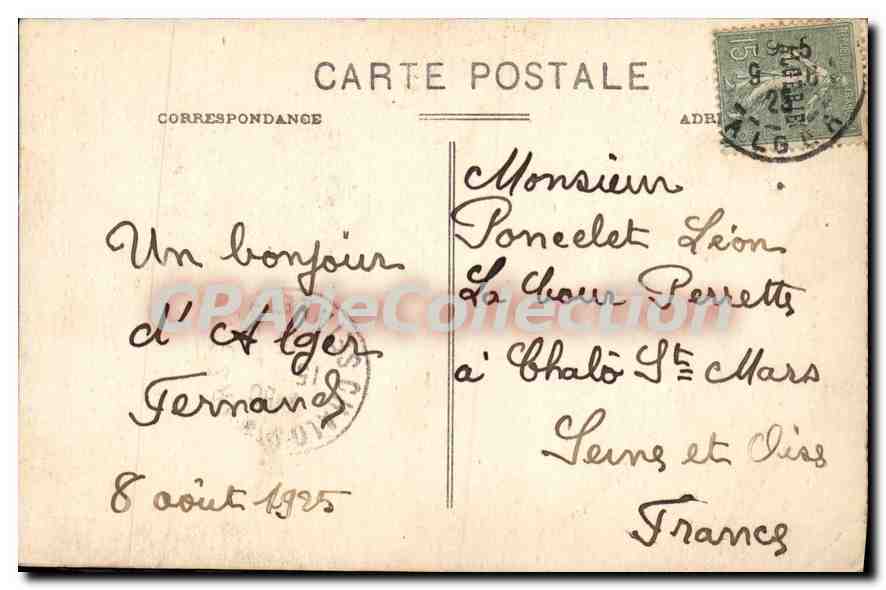 CARTE POSTALE
CORRESPONDANCE
Un bonjour
d'Alger
Fernand
8 août 1925
Monsieur
Poncelet Léon
La Cour Perrette
à Chalô St= Mars
Seine et Oise
France
15
ALGÉRIE
ALGER
CPAdeCollection.com